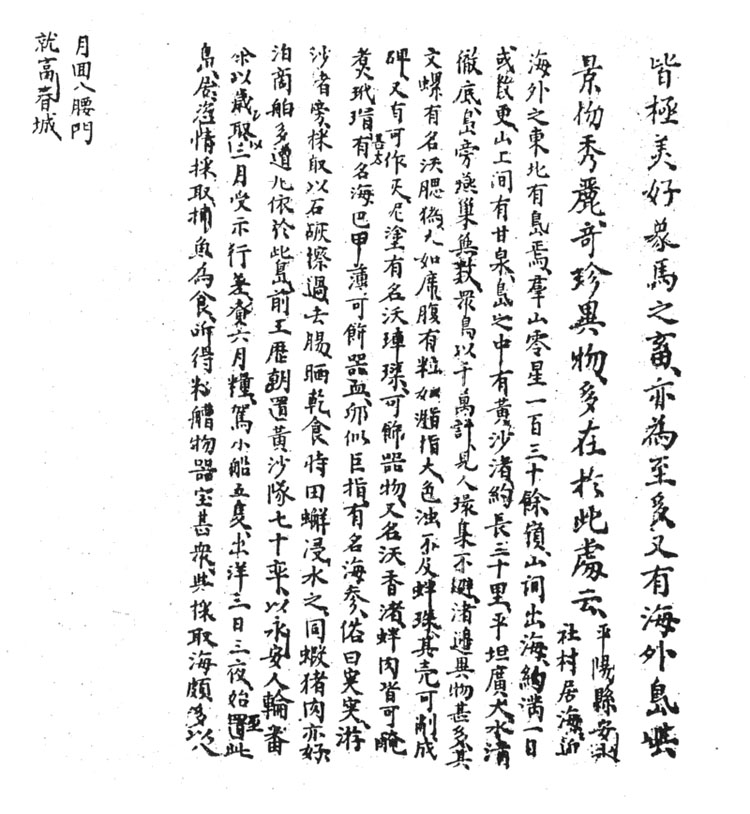 皆極美好蒙馬之畜亦為至多又有海外島嶼
景物秀麗奇珍異物多在於此處云平陽縣安永
社村居海近
海外之東北有島焉羣山零星一百三十餘嶺山间出海約滿一日
或数更山上间有甘泉島之中有黃沙渚約長三十里平坦廣大水清
徹底島旁燕巢無数眾鳥以千萬計見人環集不避渚邊異物甚多其
文螺有名沃腮㺔大如席腹有粒如指大色浊不及蚌珠其壳可削成
碑又有可作灰尼塗有名沃璖可飾器物又名沃香渚蚌肉皆可醃
煮玳瑁有名海巴甲薄可飾器皿卵似巨指有名海參俗曰突突游
甚大
沙渚旁採取以石灰擦過去腸晒乾食時田蠏浸水之同蝦猪肉亦好
泊商舶多遭兀依於此島前王歷朝置黃沙隊七十率以永安人輪番
採以歲取三月受示行差賫六月糧駕小船五隻出洋三日三夜始至此
島居恣情採取捕魚為食所得艚物器宝甚眾兴採取海頗多以八
月回入腰門
就富春城